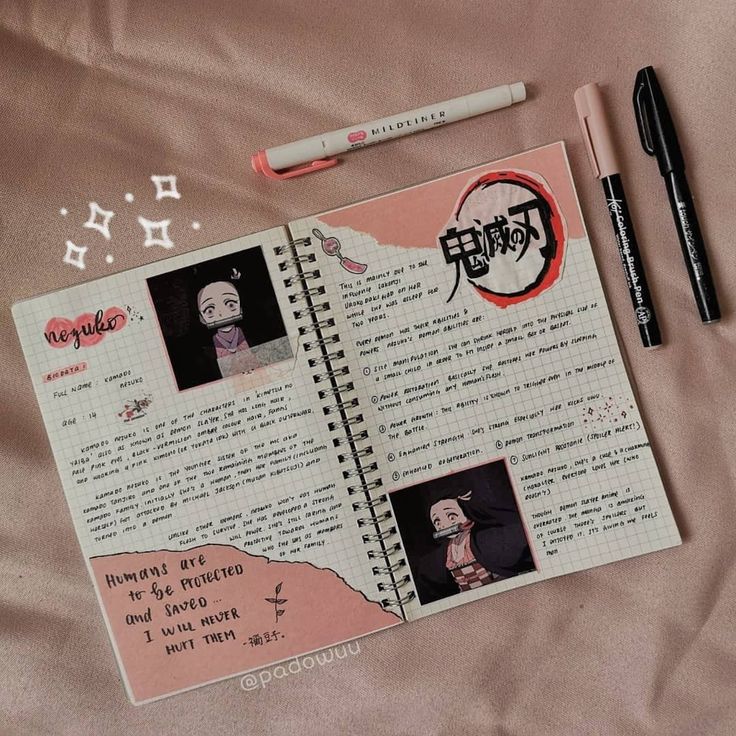 MILDLINER
nezuko
BIODATA:
FULL NAME : KAMADO
NEZUKO
AGE : 14
KAMADO NEZUKO IS ONE OF THE CHARACTERS IN KIMETSU NO
YAIBA ALSO AS KNOWN AS DEMON SLAYER. SHE HAS LONG HAIR,
PALE PINK EYES, BLACK VERMILION OMBRE COLOUR HAIR, FANGS
AND WEARING A PINK KIMONO WITH BLACK OUTERWEAR.
KAMADO NEZUKO IS THE YOUNGER SISTER OF THE MC AKA
KAMADO TANJIRO AND ONE OF THE TWO REMAINING MEMBERS OF THE
KAMADO FAMILY. INITIALLY SHE'S A HUMAN, THEN HER FAMILY (INCLUDING
HERSELF) GOT ATTACKED BY MICHAEL JACKSON (MUZAN KIBUTSUJI) AND
TURNED INTO A DEMON.
UNLIKE OTHER DEMONS, NEZUKO WON'T EAT HUMAN
FLESH TO SURVIVE. SHE HAS DEVELOPED A STRONG
WILL POWER. SHE'S STILL CARING AND
PROTECTIVE TOWARDS HUMANS
WHO SHE SAW AS MEMBERS
OF HER FAMILY.
HUMANS ARE
to be PROTECTED
and SAVED...
I WILL NEVER
HURT THEM
-禰豆子.
THIS IS MAINLY DUE TO THE
INFLUENCE SAKONJI
UROKODAKI HAD ON HER
WHILE SHE WAS ASLEEP FOR
TWO YEARS.
鬼滅の刃
EVERY DEMON HAS THEIR ABILITIES &
POWERS. NEZUKO'S DEMON ABILITIES ARE:
① SIZE MANIPULATION: SHE CAN SHRINK HERSELF INTO THE PHYSICAL SIZE OF
A SMALL CHILD IN ORDER TO FIT INSIDE A SMALL BOX OR BASKET.
② POWER RESTORATION: BASICALLY SHE RESTORES HER POWERS BY SLEEPING
WITHOUT CONSUMING ANY HUMANS FLESH.
③ POWER GROWTH: THIS ABILITY IS KNOWN TO TRIGGER EVEN IN THE MIDDLE OF
THE BATTLE.
④ ENHANCED STRENGTH: SHE'S STRONG ESPECIALLY HER KICKS UWU
⑤ ENHANCED REGENERATION.
⑥ DEMON TRANSFORMATION
⑦ SUNLIGHT RESISTANCE (SPOILER ALERT!)
KAMADO NEZUKO, SHE'S A CUTE & CHARMING
CHARACTER. EVERYONE LOVES HER (WHO
DOESN'T)
THOUGH DEMON SLAYER ANIME IS
OVERRATED THE MANGA IS AMAZING
OF COURSE THERE'S SPOILERS BUT
I ENJOYED IT. IT'S GIVING ME FEELS
Koi Coloring Brush Pen
@padowuu